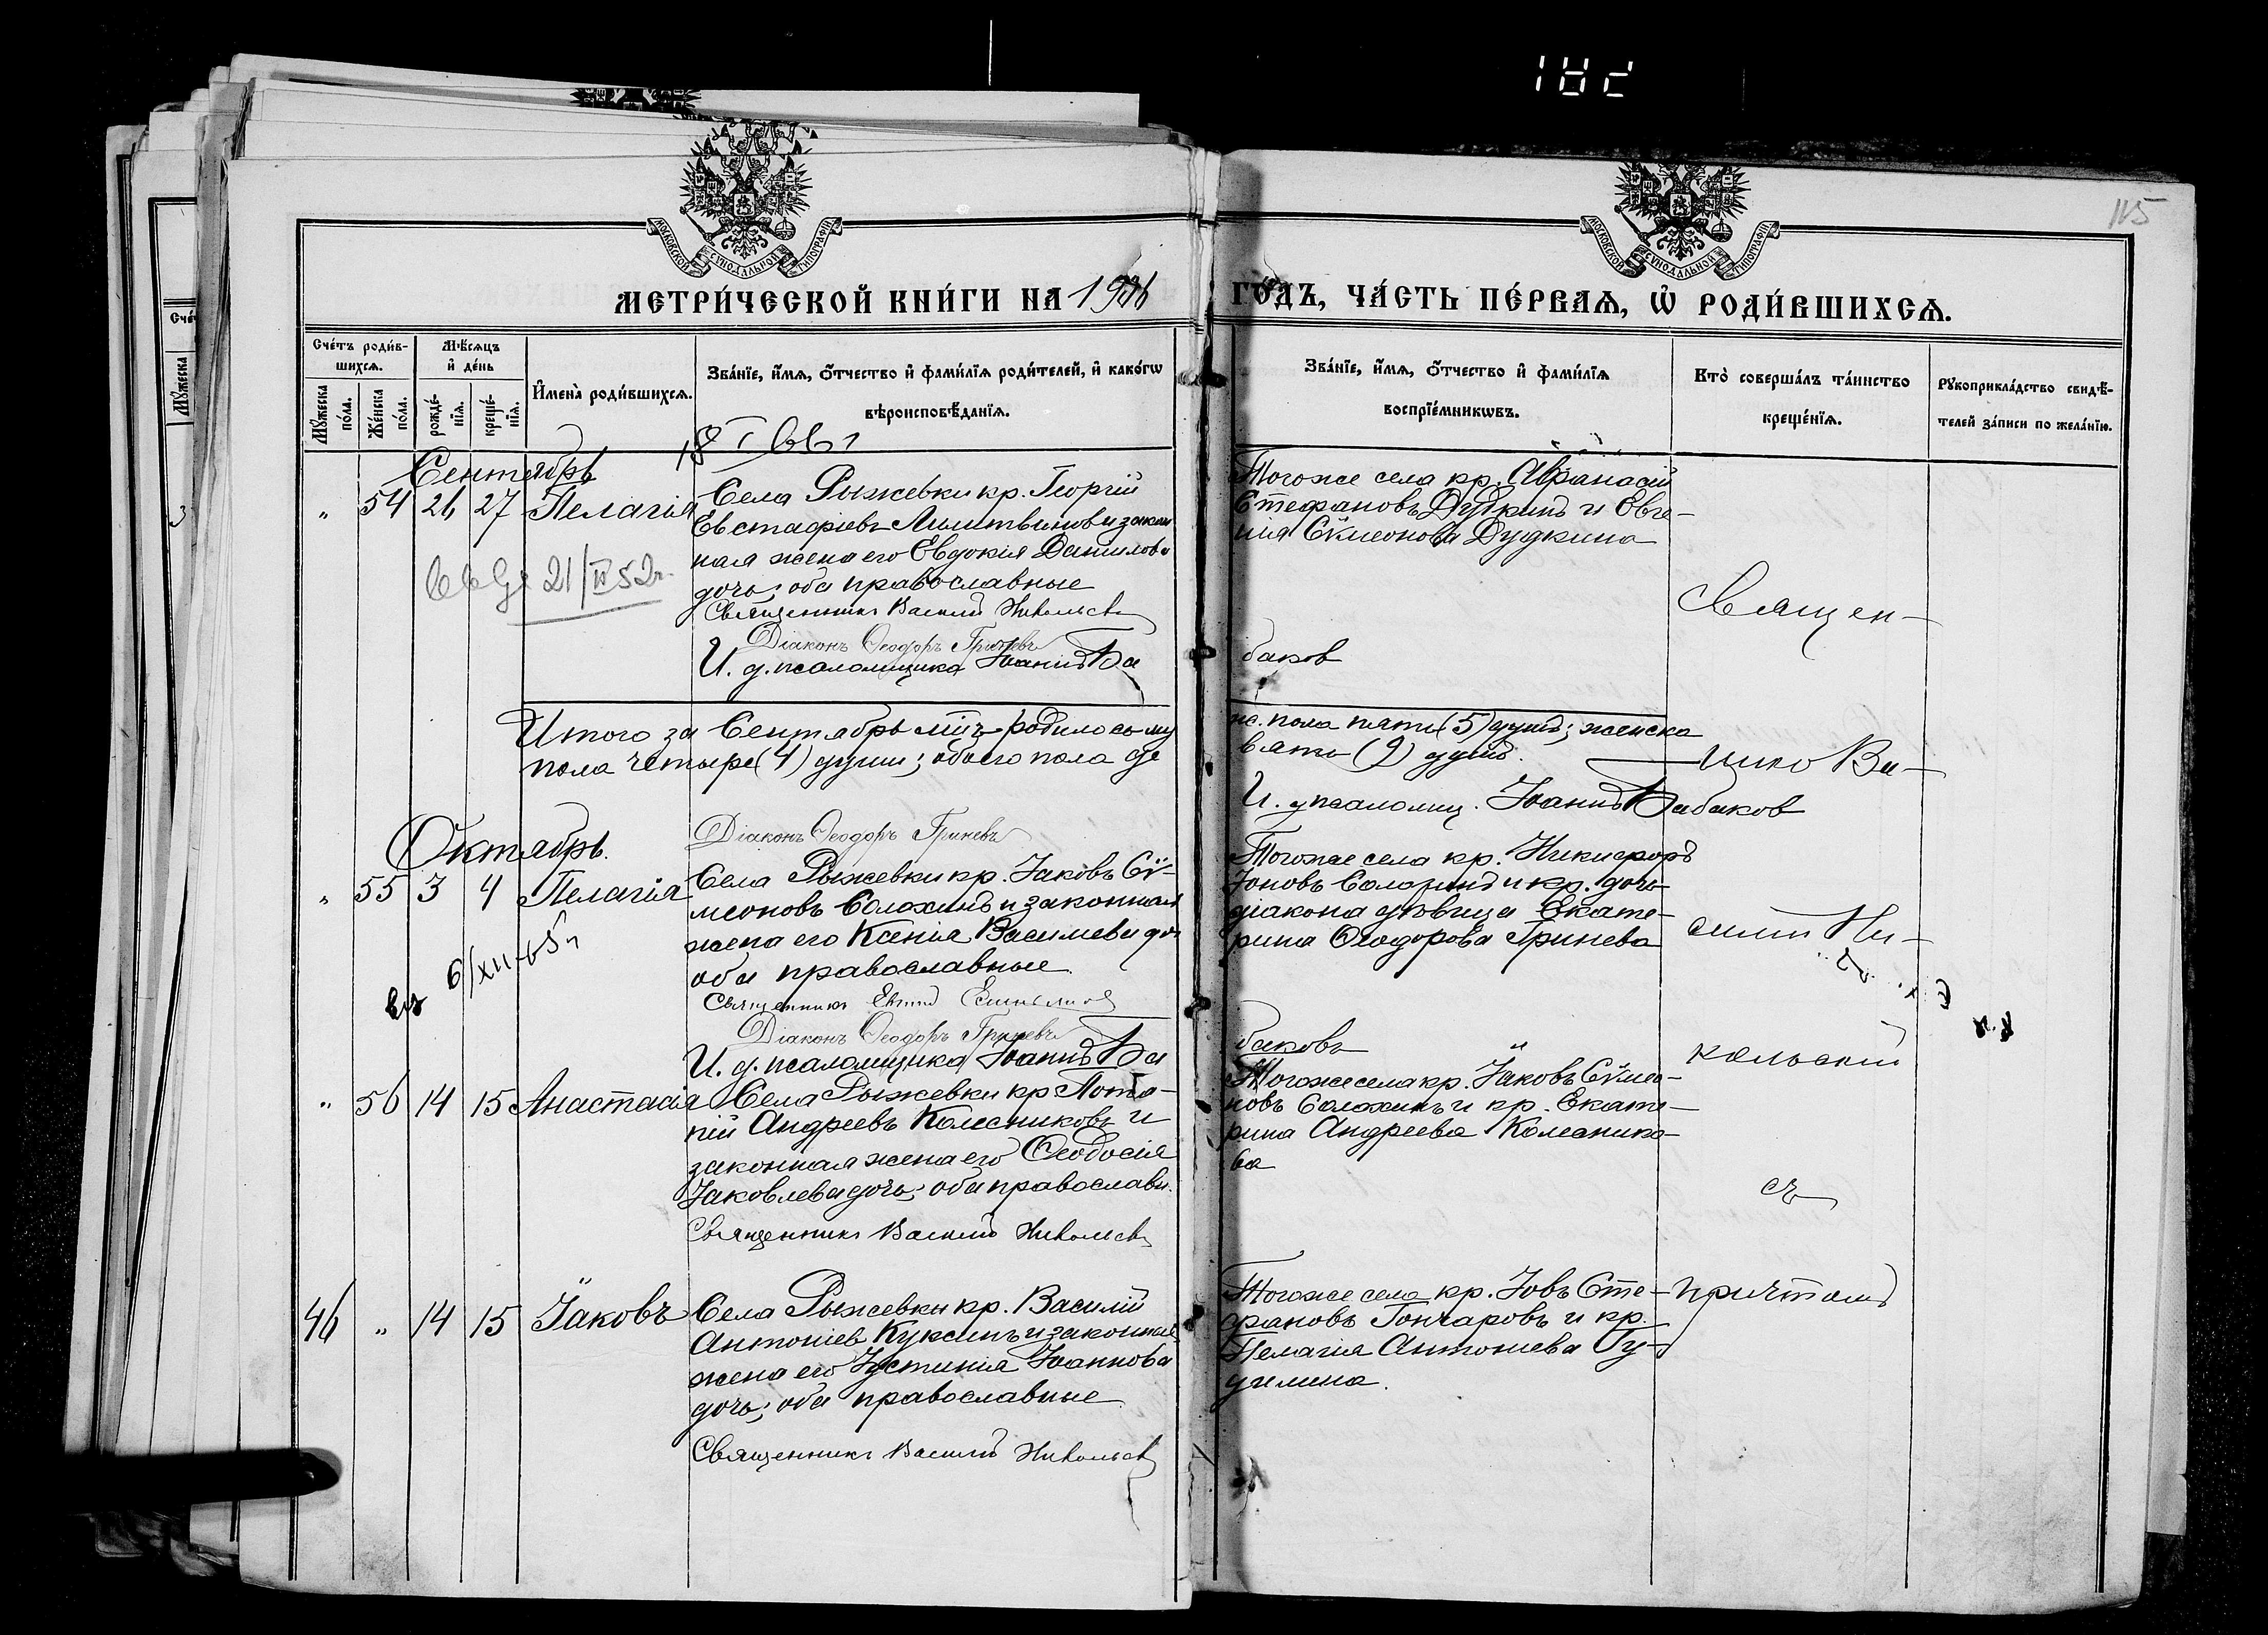 182
115
МОСКОВСКОЙ СУНОДАЛЬНОЙ ТИПОГРАФІИ
МОСКОВСКОЙ СУНОДАЛЬНОЙ ТИПОГРАФІИ
МЕТРИ́ЧЕСКОЙ КНИ́ГИ НА
ГО́ДЪ, ЧА́СТЬ ПЕ́РВАЯ, Ѡ҆ РОДИ́ВШИХСЯ.
Сче́тъ роди́в-
шихся.
Мꙋ́жеска по́ла.
Же́нска по́ла.
Мѣ́сяцъ
и҆ де́нь
рожде́-нїя.
креще́-нїя.
И҆мена̀ роди́вшихся.
Зва́нїе, и҆́мя, ѻ҆́тчество и҆ фами́лїя роди́телей, и҆ како́гѡ
вѣроисповѣ́данїя.
Зва́нїе, и҆́мя, ѻ҆́тчество и҆ фами́лїя
воспрїе́мникѡвъ.
Кто̀ соверша́лъ та́инство
креще́нїя.
Рꙋкоприкла́дство свидѣ́-
телей за́писи по жела́нїю.
Сентябрь
„ 54 26 27 Пелагія
Села Рыжевки кр. Георгій
Евстафіевъ Литвинов и закон
ная жена его Евдокія Данилова
дочь; оба православные
Священникъ Василій Никольск
Діаконъ Ѳеодоръ Гриневъ
И. д. псаломщика Іоаннъ Ба
21/II 52г.
Тогоже села кр. Аѳанасій
Стефановъ Дудкинъ и Евге-
нія Сѵмеонова Дудкина
баков
Священ-
Итого за Сентябрь мцъ родилось му
ж. пола пяти (5) душъ; женска
пола четыре (4) души; обоего пола де
вять (9) душъ.
никъ Ва-
И. д. псаломщ. Іоаннъ Бабаков
Діаконъ Ѳеодоръ Гриневъ
Октябрь.
„ 55 3 4 Пелагія
Села Рыжевки кр. Іаковъ Сѵ-
меоновъ Солохинъ и законная
жена его Ксенія Васильева до
оба православные
Священникъ
Діаконъ Ѳеодоръ Гриневъ
И. д. псаломщика Іоаннъ Ба
Тогоже села кр. Никифоръ
Іоновъ и кр. дочь
діакона дѣвица Екате-
рина Ѳеодорова Гринева
силій Ни-
баковъ
кольскій
„ 56 14 15 Анастасія
Села Рыжевки кр Пота-
пій Андреевъ Колесниковъ и
законная жена его Ѳеодосія
Іаковлева дочь; оба православн.
Священникъ Василій Никольск
Тогоже села кр. Іаковъ Сѵмео-
новъ Солохинъ и кр. Екате-
рина Андреева Колеснико-
ва
съ
46 „ 14 15 Іаковъ
Села Рыжевки кр. Василій
Антоніев Куксинъ и законная
жена его Іустинія Іоаннова
дочь; оба православные
Священникъ Василій Никольск
Тогоже села кр. Іовъ Сте-
фановъ Гончаровъ и кр.
Пелагія Антоніева
причтомъ